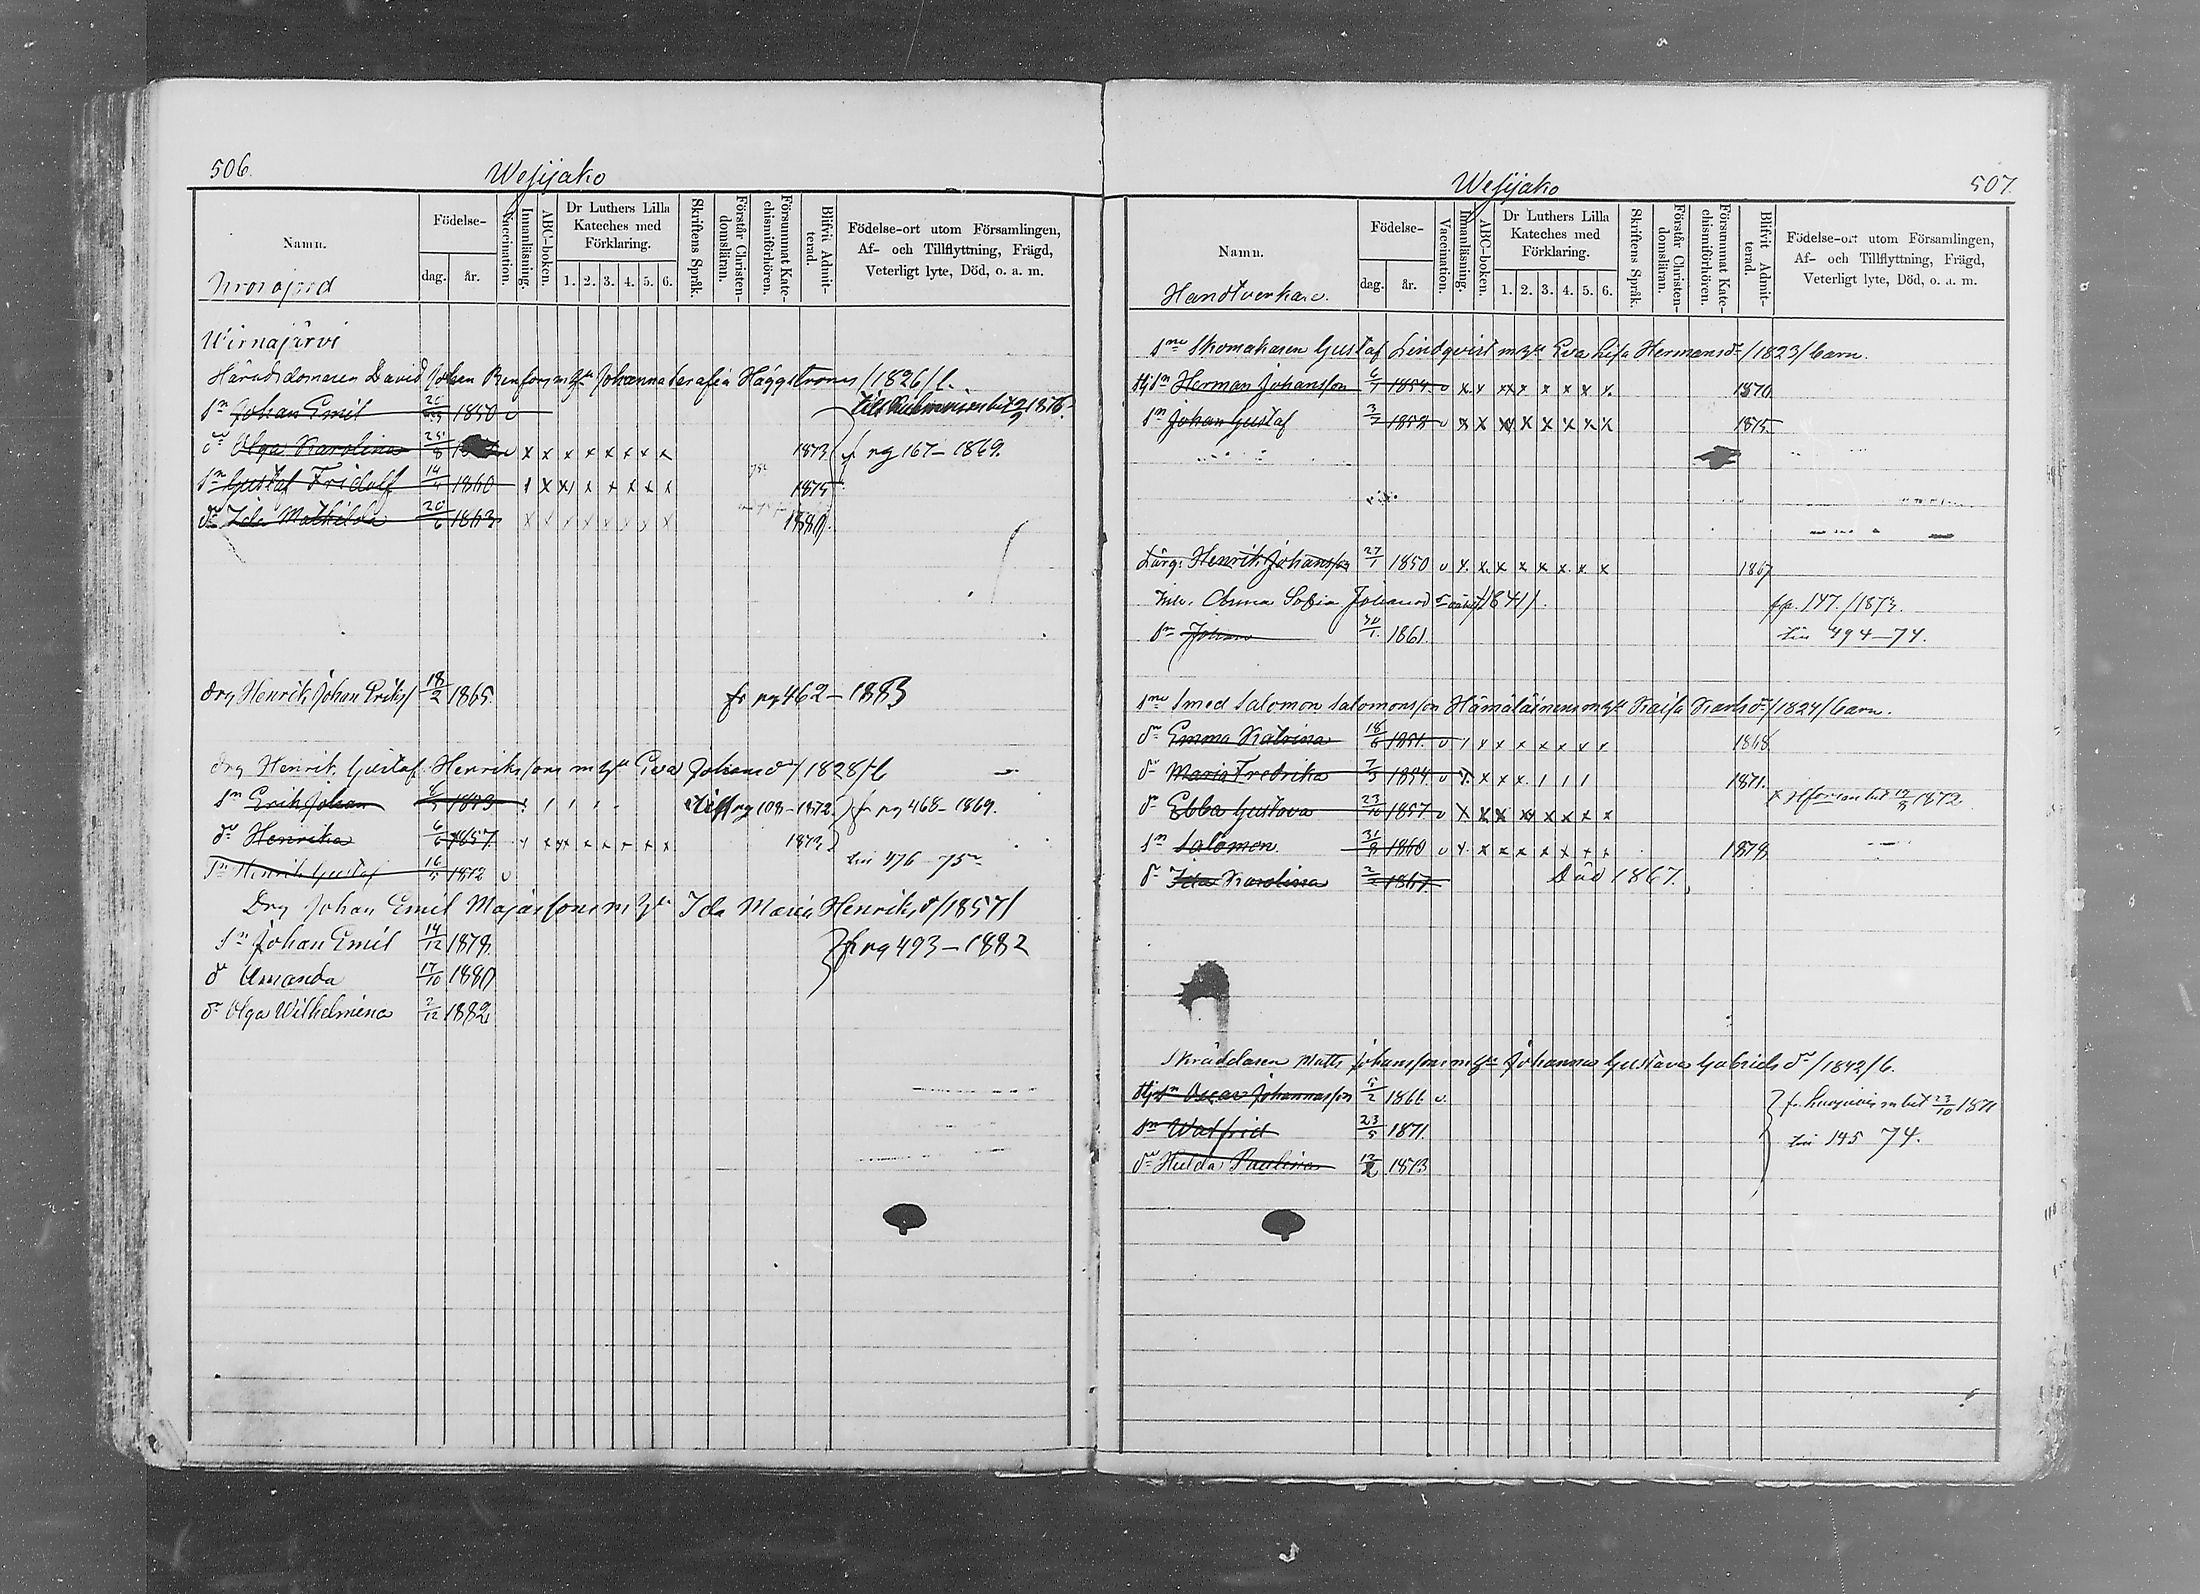 506.
Wesijako
Namn.
Födelse-
dag.
år.
Vaccination.
Innanläsning.
ABC-boken.
Dr Luthers Lilla Kateches med Förklaring.
1. 2. 3. 4. 5. 6.
Skriftens Språk.
Förstår Christendomsläran.
Försummat Katechismiförhören.
Blifvit Admitterad.
Födelse-ort utom Församlingen,
Af- och Tillflyttning, Frägd,
Veterligt lyte, Död, o. a. m.
Wirnajärvi
Häradsdomaren David Johan m hu Johanna Serafia Häggstroms /1826/ b.
Sn Johan Emil 1850 v
dr Olga Karolina 25/8 v x x x x x x x x 1873 fr pg 167–1869.
Sn Gustaf Fridolf 1860 1875
dr Ida Mathilda 20/6 1863 1880.
Drg Henrik Johan Eriks/ 18/2 1865. fr pg 462–1883
Drg Henrik Gustaf Henrikssons m hu Eva Johansdr /1828/ b
Sn Erik Johan 1853 till pg 108–1872. fr pg 468–1869.
dr Henrika 6/6 1857 1873
till 476 75
Sn Henrik Gustaf 16/5 1872 v
Drg Johan Emil Majassons m hu Ida Maria Henriksd /1857/
Sn Johan Emil 14/12 1878. fr pg 493–1882
dr Amanda 17/10 1880
dr Olga Wilhelmina 2/12 1882
Wesijako
507.
Namn.
Handtverkare.
Födelse-
dag.
år.
Vaccination.
Innanläsning.
ABC-boken.
Dr Luthers Lilla Kateches med Förklaring.
1. 2. 3. 4. 5. 6.
Skriftens Språk.
Förstår Christendomsläran.
Försummat Katechismiförhören.
Blifvit Admitterad.
Födelse-ort utom Församlingen,
Af- och Tillflyttning, Frägd,
Veterligt lyte, Död, o. a. m.
Skomakaren Gustaf Lindqvist m hu Eva Lisa Hermansdr /1823/ barn.
Stjsn Herman Johansson 1854 v x x x x x x x x 1870
Sn Johan Gustaf 1858 v x x x x x x x x 1875
Lärg. Henrik Johansson 27/1 1850 v x x x x x x x x 1867
Inh. Anna Sofia Johansd /1841/. fr p. 147./1873.
Sn Johan 1861. till 494–74.
Smed Salomon Salomonsson Hämäläinens m hu Kaisa Karlsdr /1824/ barn.
dr Emma Katrina 18/6 1851. v 1868
dr Maria Fredrika 1854 v 1871.
dr Ebba Gustava 23/10 1857. v x x x x x x x x 1872
Sn Salomon 31/8 1860 v x x x x x x x x 1878
dr Ida Karolina 1867. Död 1867.
Skräddaren Matts Johanssons m hu Johanna Gustava Gabrielsdr /1842/ b.
Stjsn Oscar Johannasson 5/2 1866 v. 23/10 1871
Sn Walfrid 23/5 1871. till 145 74.
dr Hulda Paulina 1873